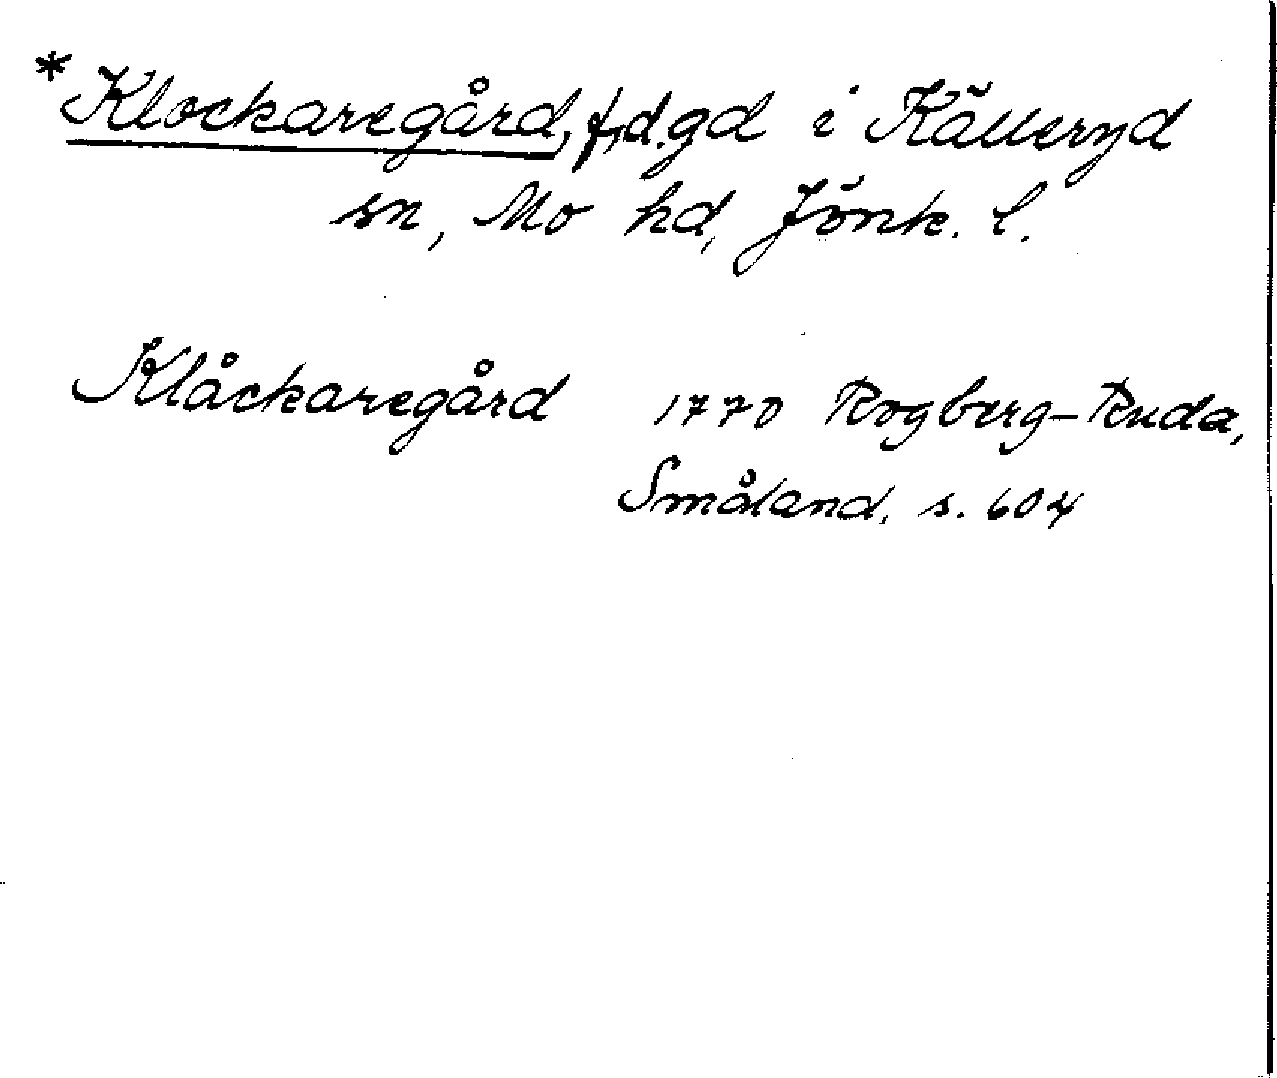 *Klockaregård, f.d. gd i Källeryd
sn, Mo hd, Jönk. l.
Klåckaregård 1770 Rogberg-Ruda,
Småland, s. 604